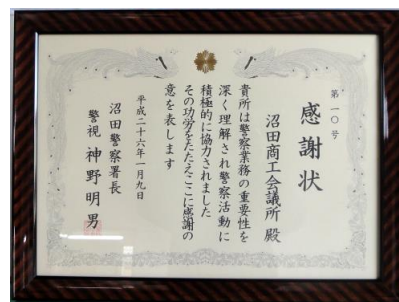 第一〇号
感謝状
沼田商工会議所 殿
貴所は警察業務の重要性を
深く理解され警察活動に
積極的に協力されました
その功労をたたえここに感謝の
意を表します
平成二十六年一月九日
沼田警察署長
警視 神野明男